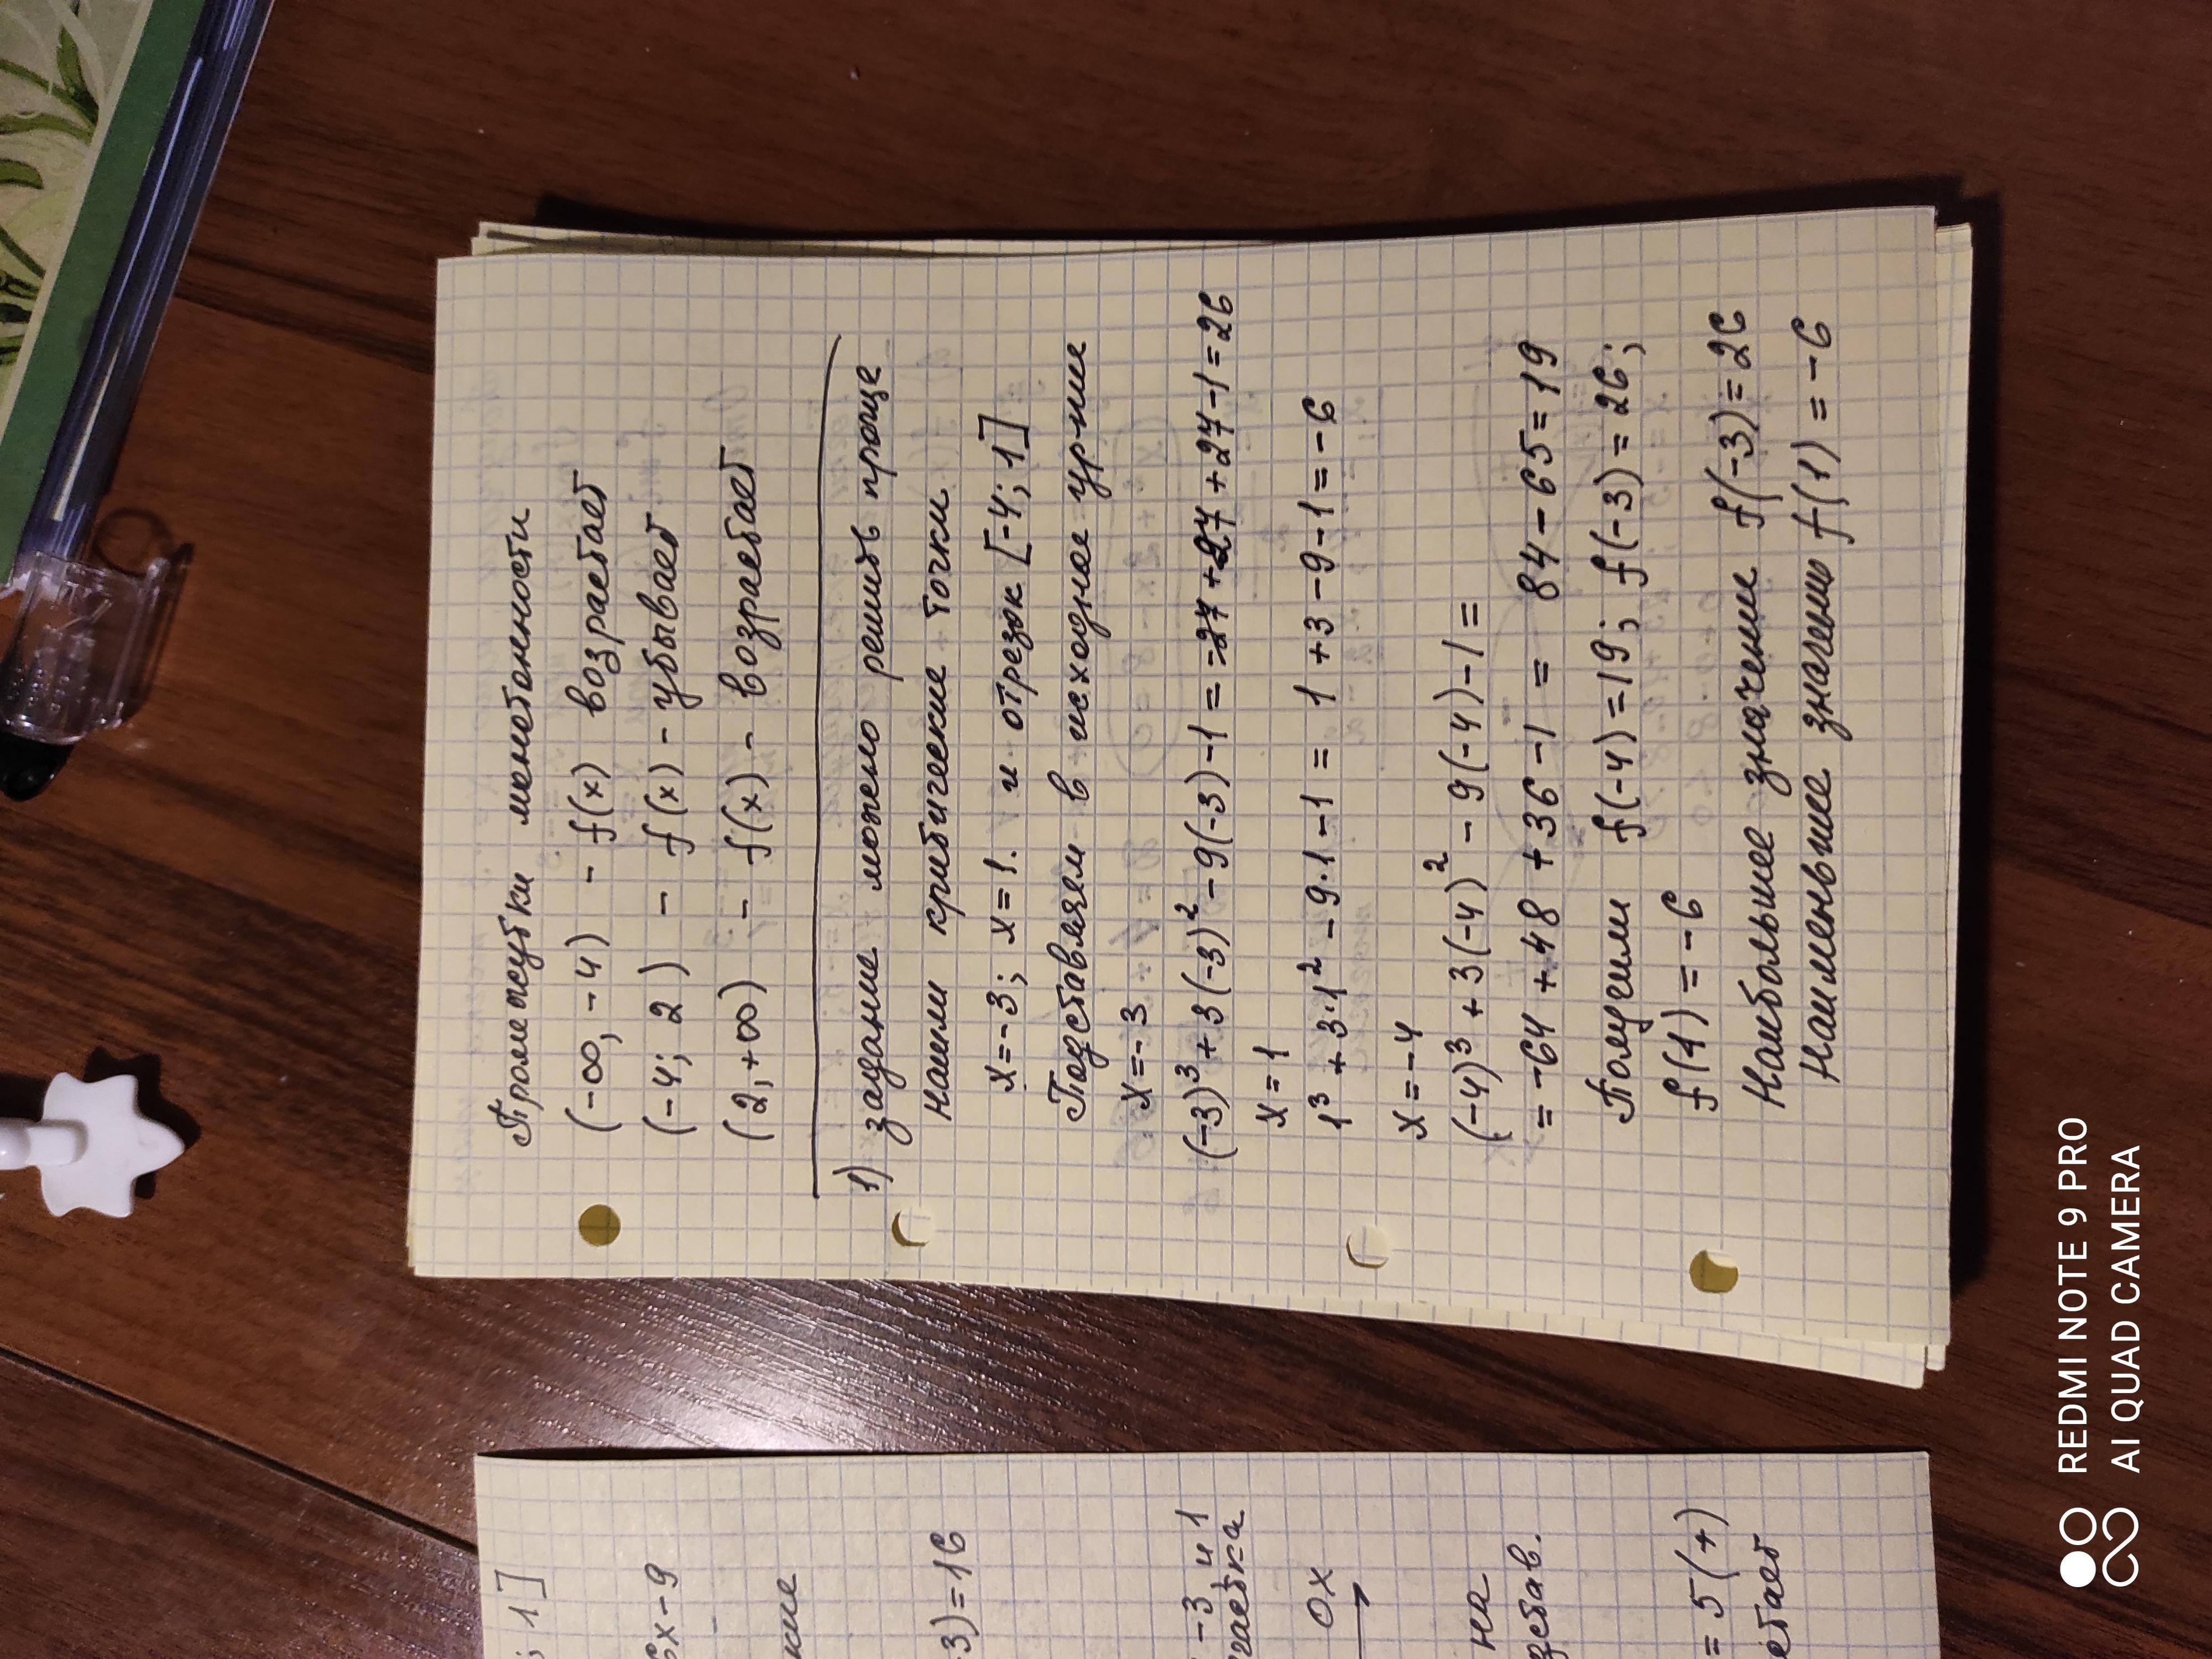 Промежутки монотонности
(-∞, -4) - f(x) возрастает
(-4; 2) - f(x) - убывает
(2, +∞) - f(x) - возрастает
1) задание можно решить проще
Нашли критические точки
x=-3; x=1. и отрезок [-4; 1]
Подставляем в исходное ур-ние
x=-3
(-3)³+3(-3)²-9(-3)-1=-27+27+27-1=26
x=1
1³+3·1²-9·1-1= 1+3-9-1=-6
x=-4
(-4)³+3(-4)²-9(-4)-1=
=-64+48+36-1= 84-65=19
Получили f(-4)=19; f(-3)=26;
f(1)=-6
Наибольшее значение f(-3)=26
Наименьшее значению f(1)=-6
; 1]
6x-9
3)=16
-3 и 1
0x
на
=5(+)
REDMI NOTE 9 PRO
AI QUAD CAMERA